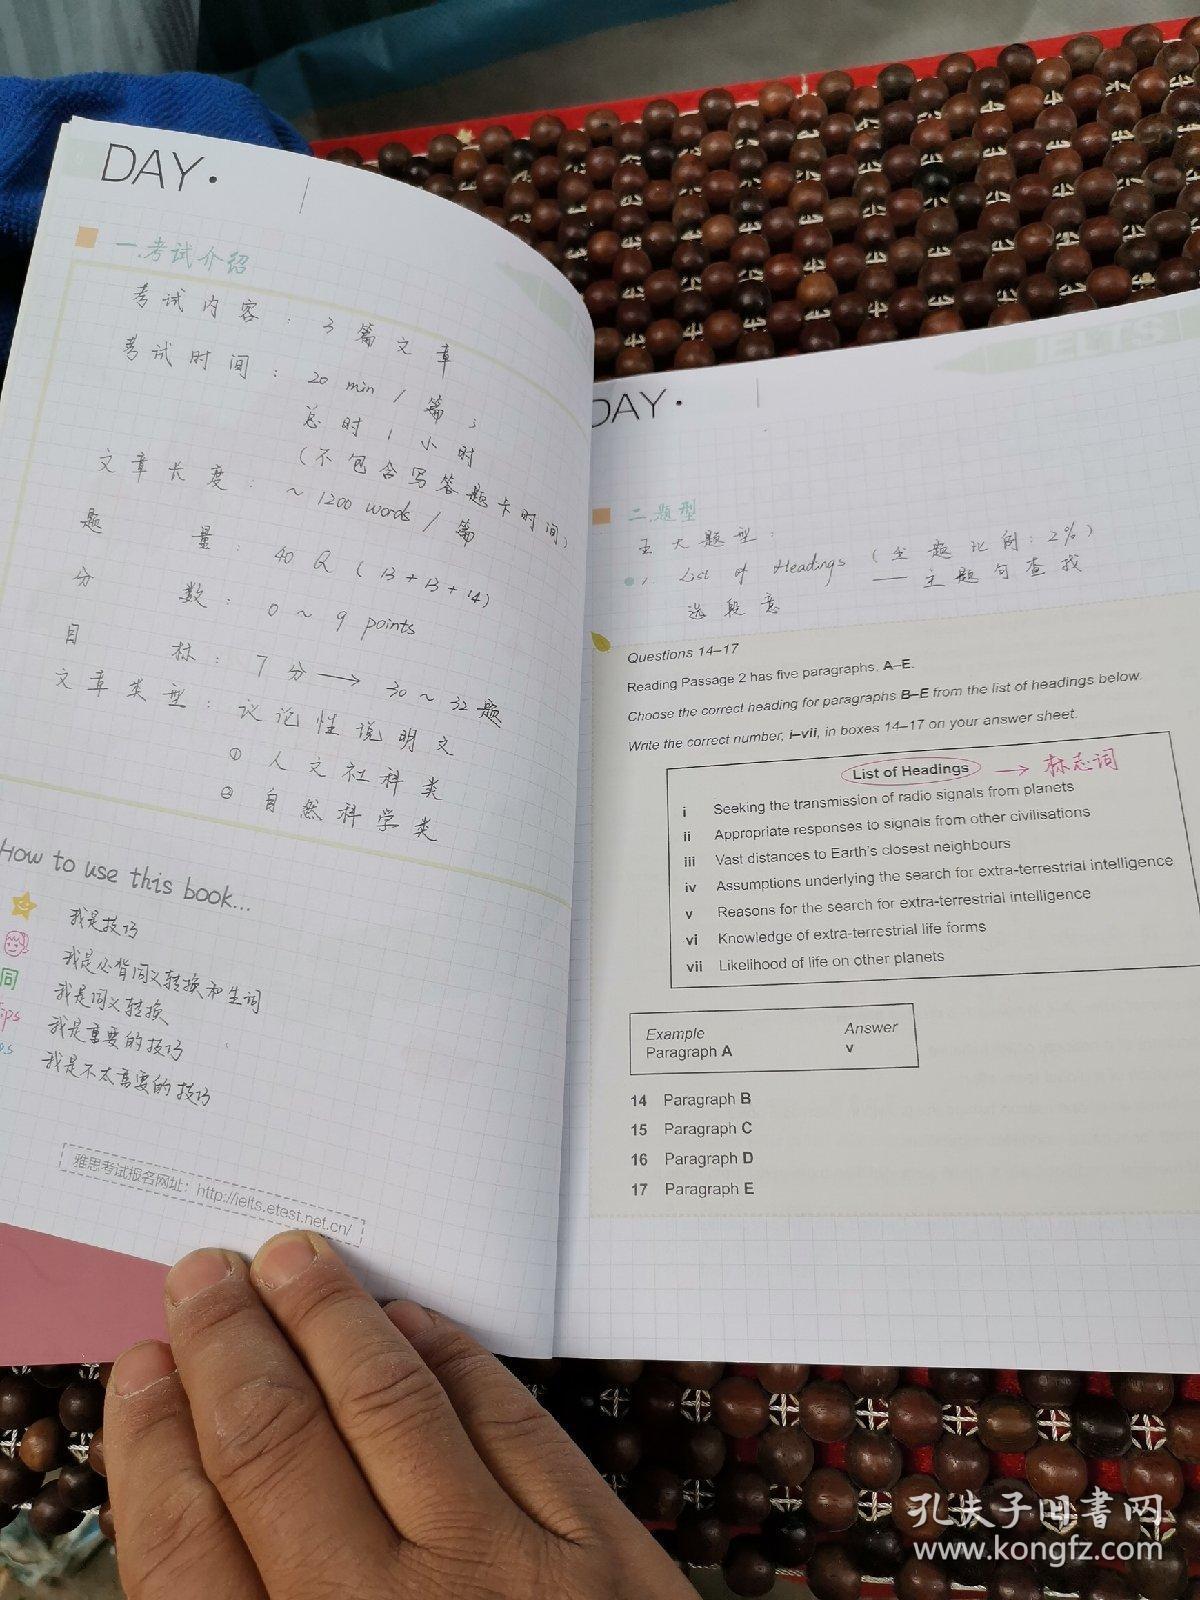 DAY.
一.考试介绍
考试内容：3篇文章
考试时间：20 min / 篇；
总时1小时
(不包含写答题卡时间)
文章长度：~1200 words / 篇
题量：40 Q (13+13+14)
分数：0 ~ 9 points
目标：7分→30~32题
文章类型：议论性说明文
① 人文社科类
② 自然科学类
How to use this book...
我是技巧
我是必背同义转换和生词
同 我是同义转换
tips 我是重要的技巧
我是不太重要的技巧
雅思考试报名网址：http://ielts.etest.net.cn/
DAY.
二.题型
五大题型：
1. List of Headings (全题比例：2%)
选段意 —— 主题句查找
Questions 14–17
Reading Passage 2 has five paragraphs, A–E.
Choose the correct heading for paragraphs B–E from the list of headings below.
Write the correct number, i–vii, in boxes 14–17 on your answer sheet.
List of Headings → 标志词
i Seeking the transmission of radio signals from planets
ii Appropriate responses to signals from other civilisations
iii Vast distances to Earth's closest neighbours
iv Assumptions underlying the search for extra-terrestrial intelligence
v Reasons for the search for extra-terrestrial intelligence
vi Knowledge of extra-terrestrial life forms
vii Likelihood of life on other planets
Example Answer
Paragraph A v
14 Paragraph B
15 Paragraph C
16 Paragraph D
17 Paragraph E
孔夫子旧書网
www.kongfz.com